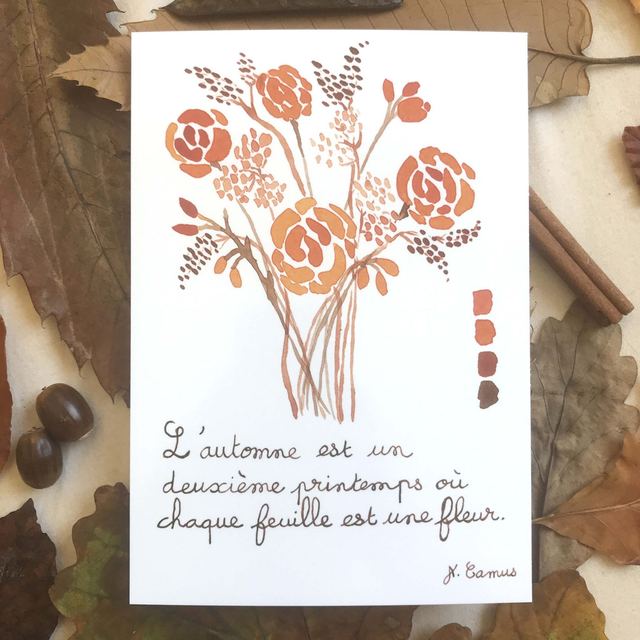 L'automne est un
deuxième printemps où
chaque feuille est une fleur.
A. Camus